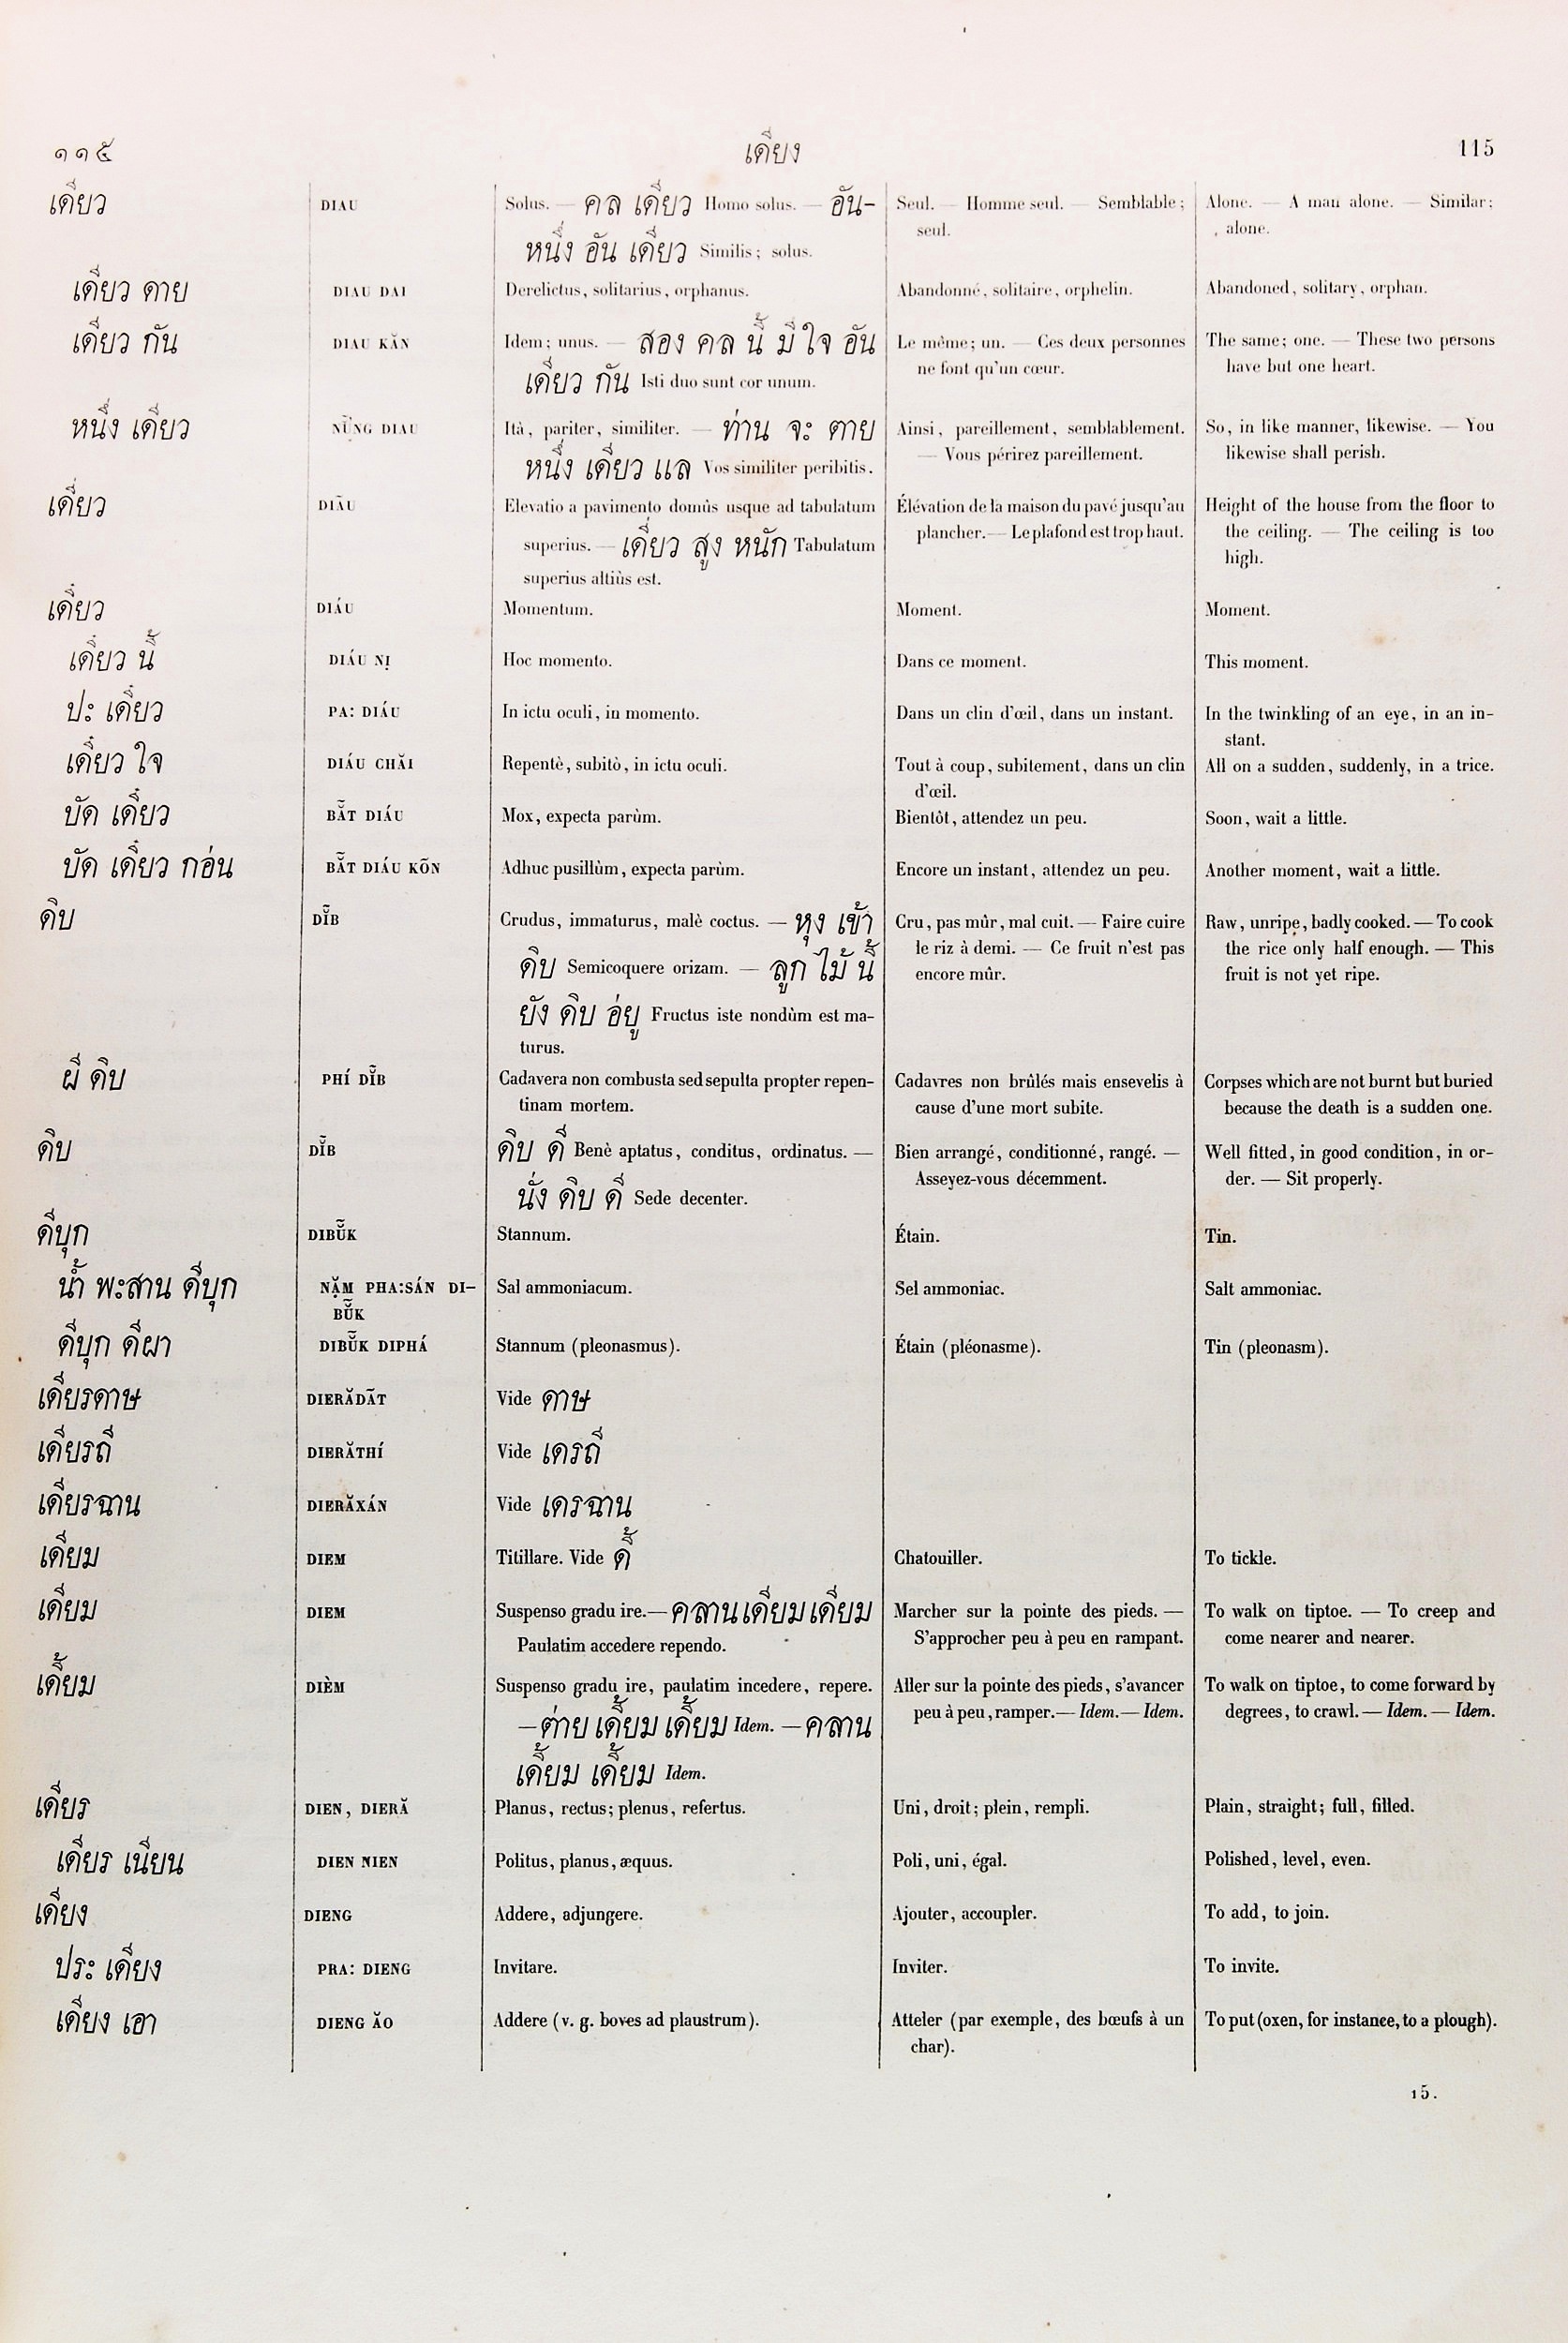 ๑๑๕ เดียง 115
เดียว DIAU Solus. — คล เดียว Homo solus. — อัน- Seul. — Homme seul. — Semblable; Alone. — A man alone. — Similar;
หนึ่ง อัน เดียว Similis; solus. seul. alone.
เดียว ดาย DIAU DAI Derelictus, solitarius, orphanus. Abandonné, solitaire, orphelin. Abandoned, solitary, orphan.
เดียว กัน DIAU KĂN Idem; unus. — สอง คล นี้ มี ใจ อัน Le même; un. — Ces deux personnes The same; one. — These two persons
เดียว กัน Isti duo sunt cor unum. ne font qu'un cœur. have but one heart.
หนึ่ง เดียว NŨNG DIAU Ità, pariter, similiter. — ท่าน จะ ตาย Ainsi, pareillement, semblablement. So, in like manner, likewise. — You
หนึ่ง เดียว แล Vos similiter peribitis. — Vous périrez pareillement. likewise shall perish.
เดี่ยว DIÃU Elevatio a pavimento domûs usque ad tabulatum Élévation de la maison du pavé jusqu'au Height of the house from the floor to
superius. — เดี่ยว สูง หนัก Tabulatum plancher. — Le plafond est trop haut. the ceiling. — The ceiling is too
superius altiùs est. high.
เดี๋ยว DIÁU Momentum. Moment. Moment.
เดี๋ยว นี้ DIÁU NỊ Hoc momento. Dans ce moment. This moment.
ปะ เดี๋ยว PA: DIÁU In ictu oculi, in momento. Dans un clin d'œil, dans un instant. In the twinkling of an eye, in an in-
stant.
เดี๋ยว ใจ DIÁU CHĂI Repentè, subitò, in ictu oculi. Tout à coup, subitement, dans un clin All on a sudden, suddenly, in a trice.
d'œil.
บัด เดี๋ยว BẴT DIÁU Mox, expecta parùm. Bientôt, attendez un peu. Soon, wait a little.
บัด เดี๋ยว ก่อน BẴT DIÁU KÕN Adhuc pusillùm, expecta parùm. Encore un instant, attendez un peu. Another moment, wait a little.
ดิบ DĬ̃B Crudus, immaturus, malè coctus. — หุง เข้า Cru, pas mûr, mal cuit. — Faire cuire Raw, unripe, badly cooked. — To cook
ดิบ Semicoquere orizam. — ลูก ไม้ นี้ le riz à demi. — Ce fruit n'est pas the rice only half enough. — This
ยัง ดิบ อ่ยู Fructus iste nondùm est ma- encore mûr. fruit is not yet ripe.
turus.
ผี ดิบ PHÍ DĬ̃B Cadavera non combusta sed sepulta propter repen- Cadavres non brûlés mais ensevelis à Corpses which are not burnt but buried
tinam mortem. cause d'une mort subite. because the death is a sudden one.
ดิบ DĬ̃B ดิบ ดี Benè aptatus, conditus, ordinatus. — Bien arrangé, conditionné, rangé. — Well fitted, in good condition, in or-
นั่ง ดิบ ดี Sede decenter. Asseyez-vous décemment. der. — Sit properly.
ดีบุก DIBŬ̃K Stannum. Étain. Tin.
น้ำ พะสาน ดีบุก NẶM PHA:SÁN DI- Sal ammoniacum. Sel ammoniac. Salt ammoniac.
BŬ̃K
ดีบุก ดีผา DIBŬ̃K DIPHÁ Stannum (pleonasmus). Étain (pléonasme). Tin (pleonasm).
เดียรดาษ DIERĂDÃT Vide ดาษ
เดียรถี DIERĂTHÍ Vide เดรถี
เดียรฉาน DIERĂXÁN Vide เดรฉาน
เดียม DIEM Titillare. Vide ดี้ Chatouiller. To tickle.
เดียม DIEM Suspenso gradu ire. — คลานเดียมเดียม Marcher sur la pointe des pieds. — To walk on tiptoe. — To creep and
Paulatim accedere rependo. S'approcher peu à peu en rampant. come nearer and nearer.
เดี้ยม DIÈM Suspenso gradu ire, paulatim incedere, repere. Aller sur la pointe des pieds, s'avancer To walk on tiptoe, to come forward by
— ต่าย เดี้ยม เดี้ยม Idem. — คลาน peu à peu, ramper. — Idem. — Idem. degrees, to crawl. — Idem. — Idem.
เดี้ยม เดี้ยม Idem.
เดียร DIEN, DIERĂ Planus, rectus; plenus, refertus. Uni, droit; plein, rempli. Plain, straight; full, filled.
เดียร เนียน DIEN NIEN Politus, planus, æquus. Poli, uni, égal. Polished, level, even.
เดียง DIENG Addere, adjungere. Ajouter, accoupler. To add, to join.
ประ เดียง PRA: DIENG Invitare. Inviter. To invite.
เดียง เอา DIENG ĂO Addere (v. g. boves ad plaustrum). Atteler (par exemple, des bœufs à un To put (oxen, for instance, to a plough).
char).
15.